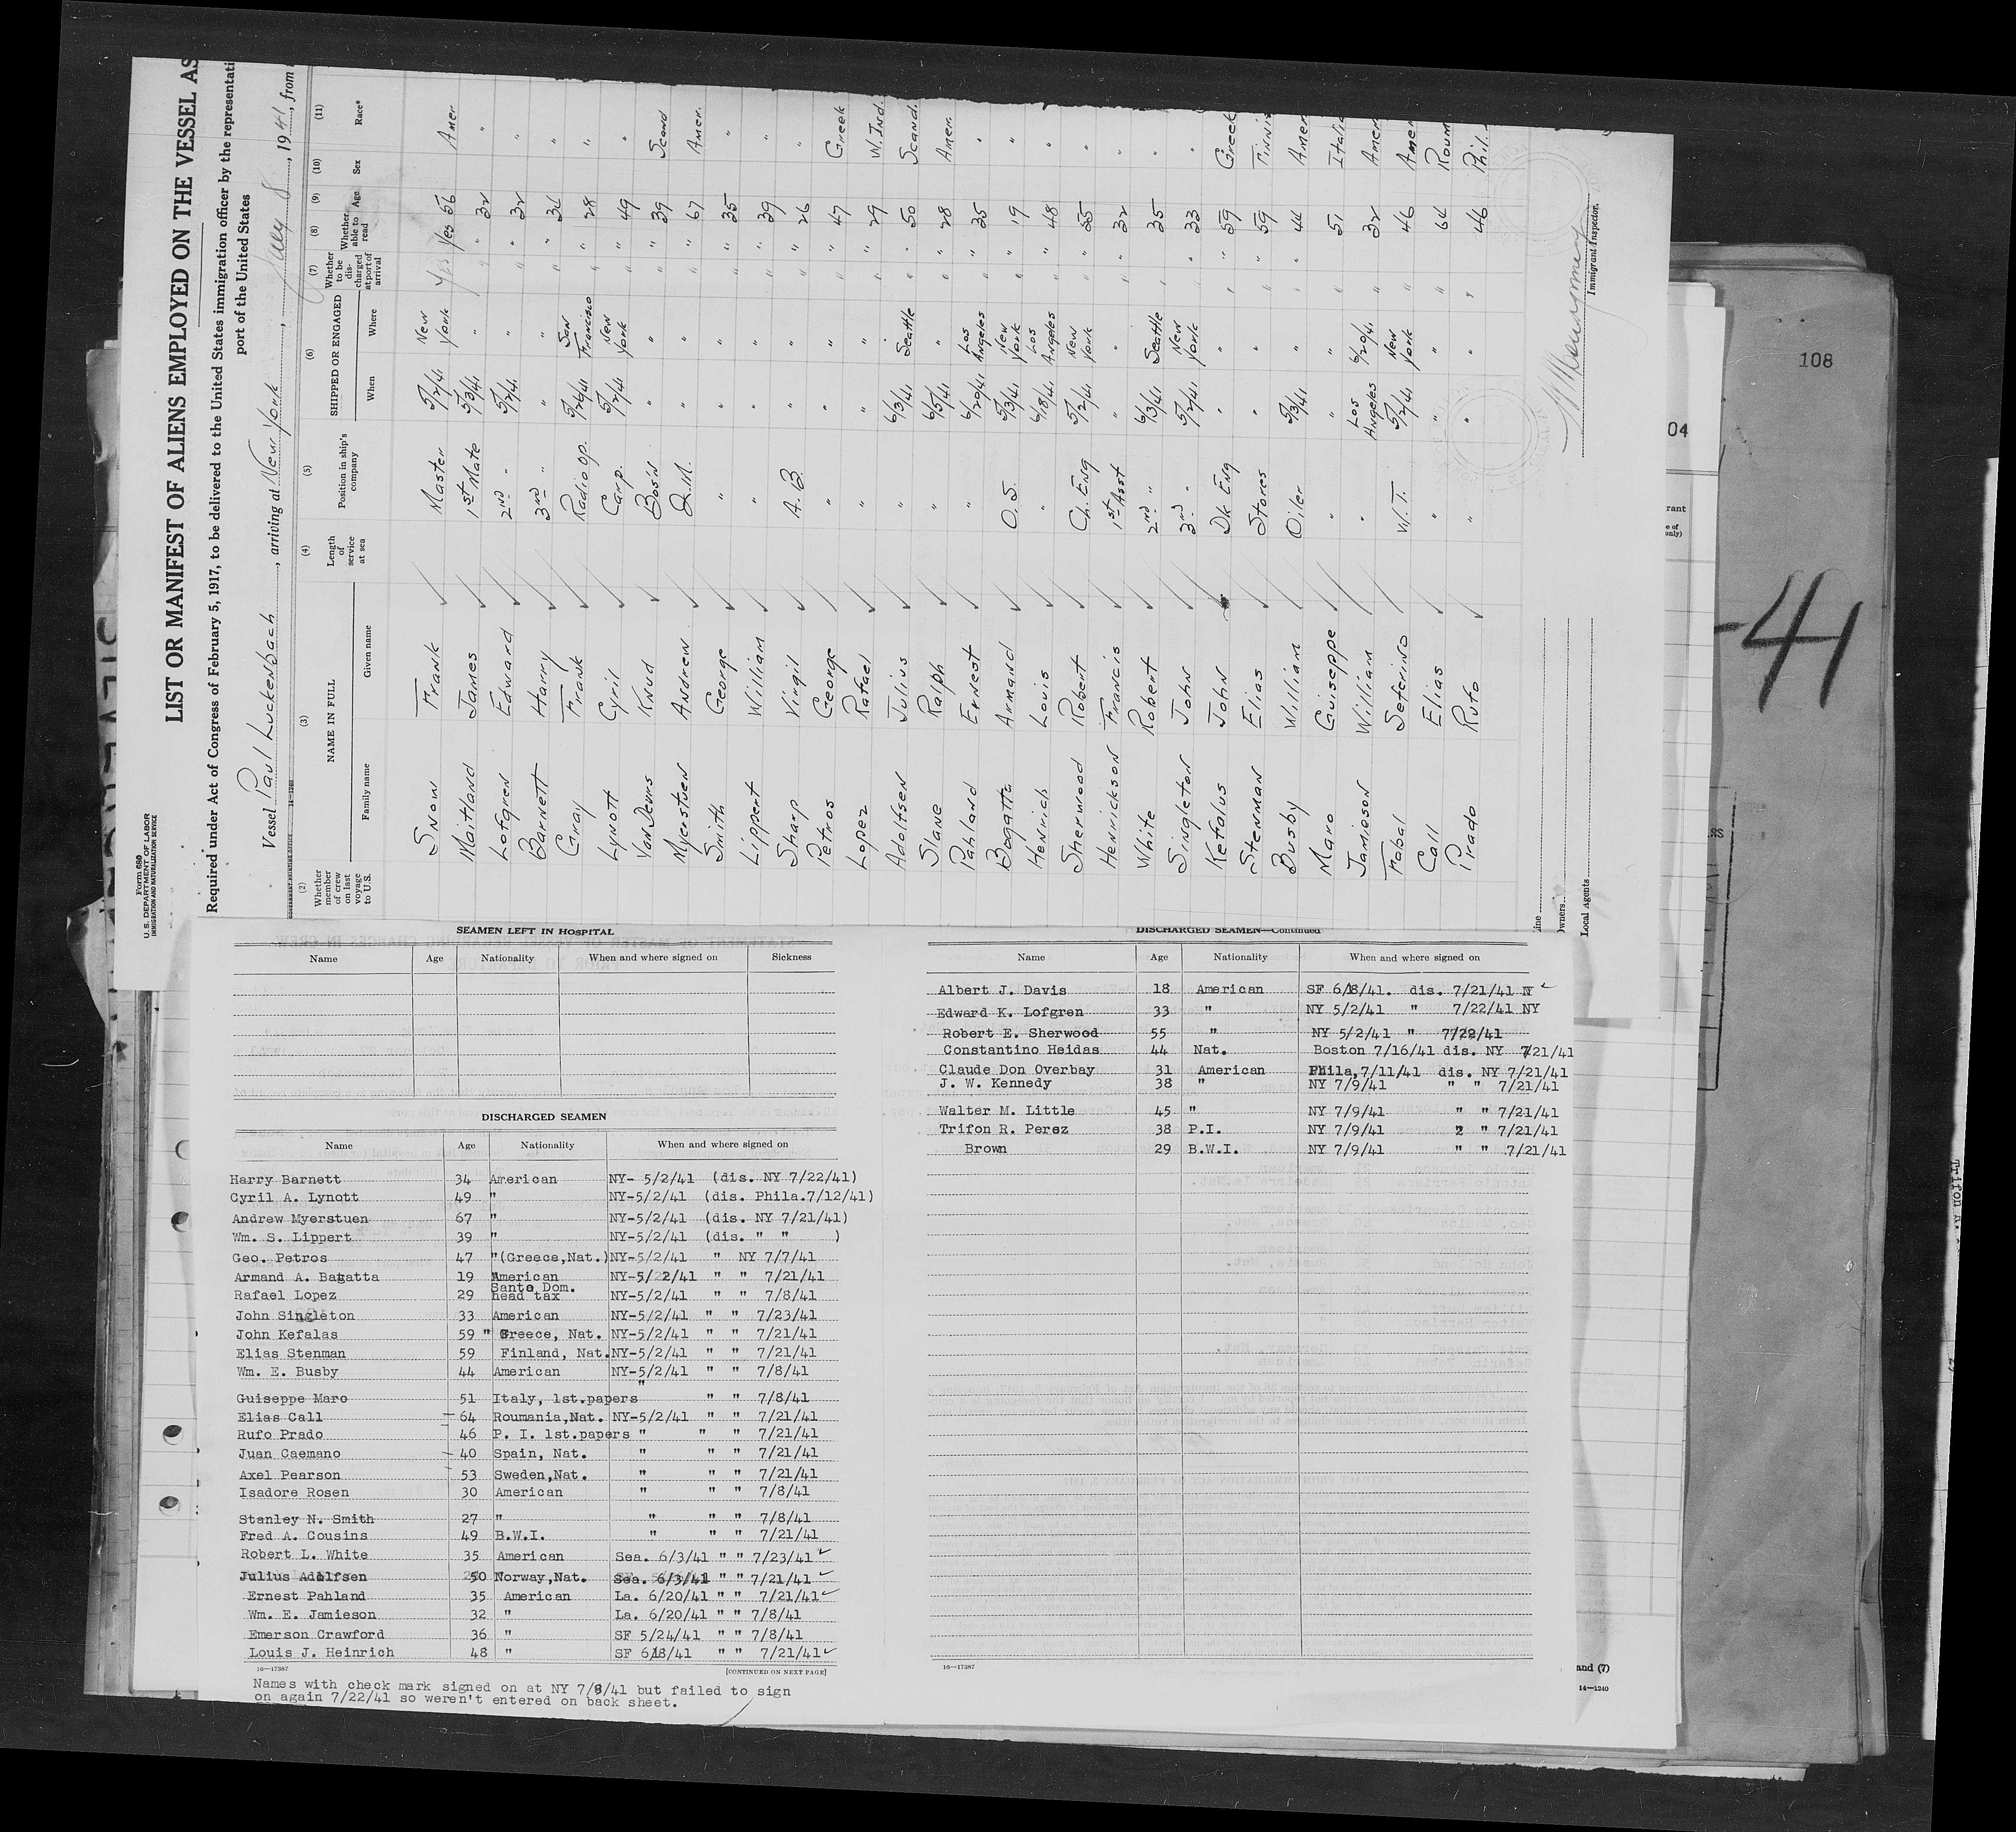 Form 680
U. S. DEPARTMENT OF LABOR
IMMIGRATION AND NATURALIZATION SERVICE
LIST OR MANIFEST OF ALIENS EMPLOYED ON THE VESSEL AS
Required under Act of Congress of February 5, 1917, to be delivered to the United States immigration officer by the representati
port of the United States
Vessel Paul Luckenbach, arriving at New York, July 8, 1941, from
(2) (3) (4) (5) (6) (7) (8) (9) (10) (11)
Whether member of crew on last voyage to U.S.
NAME IN FULL
Family name Given name
Length of service at sea
Position in ship's company
SHIPPED OR ENGAGED
When Where
Whether to be discharged at port of arrival
Whether able to read
Age Sex Race*
Snow Frank Master 5/2/41 New York Yes Yes 56 Amer
Maitland James 1st Mate 5/3/41 " " " 32 "
Lofgren Edward 2nd " 5/2/41 " " " 32 "
Barnett Harry 3rd " " " " " 34 "
Gray Frank Radio Op. 5/26/41 San Francisco " " 28 "
Lynott Cyril Carp. 5/2/41 New York " " 49 "
Van Deurs Knud Bos'n " " " " 39 Scand
Myerstuen Andrew Q.M. " " " " 67 Amer.
Smith George " " " " " 35 "
Lippert William " " " " " 39 "
Sharp Virgil A.B. " " " " 26 "
Petros George " " " " " 47 Greek
Lopez Rafael " " " " " 29 W.Ind.
Adolfsen Julius " 6/3/41 Seattle " " 50 Scand.
Slane Ralph " 6/5/41 " " " 28 Amer.
Pahland Ernest " 6/20/41 Los Angeles " " 35 "
Bagatta Armand O.S. 5/3/41 New York " " 19 "
Henrich Louis " 6/18/41 Los Angeles " " 48 "
Sherwood Robert Ch. Eng 5/2/41 New York " " 55 "
Henrickson Francis 1st Asst " " " " 32 "
White Robert 2nd " 6/3/41 Seattle " " 35 "
Singleton John 3rd " 5/2/41 New York " " 33 "
Kefalus John Dk Eng " " " " 59 Greek
Stenman Elias Stores " " " " 59 Finnis
Busby William Oiler 5/3/41 " " " 44 Amer
Maro Guiseppe " " " " 51 Italia
Jamieson William " Los Angeles 6/20/41 " 32 Amer
Fabal Seferino W.T. 5/2/41 New York " 46 Amer
Call Elias " " " " 64 Roum
Prado Rufo " " " " 46 Phil.
Immigrant Inspector.
Local Agents
108
04
41
SEAMEN LEFT IN HOSPITAL
Name Age Nationality When and where signed on Sickness
DISCHARGED SEAMEN
Name Age Nationality When and where signed on
Harry Barnett 34 American NY- 5/2/41 (dis. NY 7/22/41)
Cyril A. Lynott 49 " NY-5/2/41 (dis. Phila.7/12/41)
Andrew Myerstuen 67 " NY-5/2/41 (dis. NY 7/21/41)
Wm. S. Lippert 39 " NY-5/2/41 (dis. " " )
Geo. Petros 47 "(Greece,Nat.)NY-5/2/41 " NY 7/7/41
Armand A. Bagatta 19 American NY-5/2/41 " " 7/21/41
Rafael Lopez 29 Santo Dom. head tax NY-5/2/41 " " 7/8/41
John Singleton 33 American NY-5/2/41 " " 7/23/41
John Kefalas 59 " Greece, Nat. NY-5/2/41 " " 7/21/41
Elias Stenman 59 Finland, Nat.NY-5/2/41 " " 7/21/41
Wm. E. Busby 44 American NY-5/2/41 " " 7/8/41
Guiseppe Maro 51 Italy, 1st.papers " " " 7/8/41
Elias Call 64 Roumania,Nat. NY-5/2/41 " " 7/21/41
Rufo Prado 46 P. I. 1st.papers " " " 7/21/41
Juan Caemano 40 Spain, Nat. " " " 7/21/41
Axel Pearson 53 Sweden,Nat. " " " 7/21/41
Isadore Rosen 30 American " " " 7/8/41
Stanley N. Smith 27 " " " " 7/8/41
Fred A. Cousins 49 B.W.I. " " " 7/21/41
Robert L. White 35 American Sea. 6/3/41 " " 7/23/41 ✓
Julius Adolfsen 50 Norway,Nat. Sea. 6/3/41 " " 7/21/41 ✓
Ernest Pahland 35 American La. 6/20/41 " " 7/21/41 ✓
Wm. E. Jamieson 32 " La. 6/20/41 " " 7/8/41
Emerson Crawford 36 " SF 5/24/41 " " 7/8/41
Louis J. Heinrich 48 " SF 6/18/41 " " 7/21/41 ✓
16—17387 [CONTINUED ON NEXT PAGE]
Names with check mark signed on at NY 7/8/41 but failed to sign
on again 7/22/41 so weren't entered on back sheet.
DISCHARGED SEAMEN—Continued
Name Age Nationality When and where signed on
Albert J. Davis 18 American SF 6/18/41. dis. 7/21/41 NY ✓
Edward K. Lofgren 33 " NY 5/2/41 " 7/22/41 NY
Robert E. Sherwood 55 " NY 5/2/41 " 7/22/41
Constantino Heidas 44 Nat. Boston 7/16/41 dis. NY 7/21/41
Claude Don Overbay 31 American Phila,7/11/41 dis. NY 7/21/41
J. W. Kennedy 38 " NY 7/9/41 " " 7/21/41
Walter M. Little 45 " NY 7/9/41 " " 7/21/41
Trifon R. Perez 38 P.I. NY 7/9/41 " " 7/21/41
Brown 29 B.W.I. NY 7/9/41 " " 7/21/41
16—17387
and (7)
14—1240